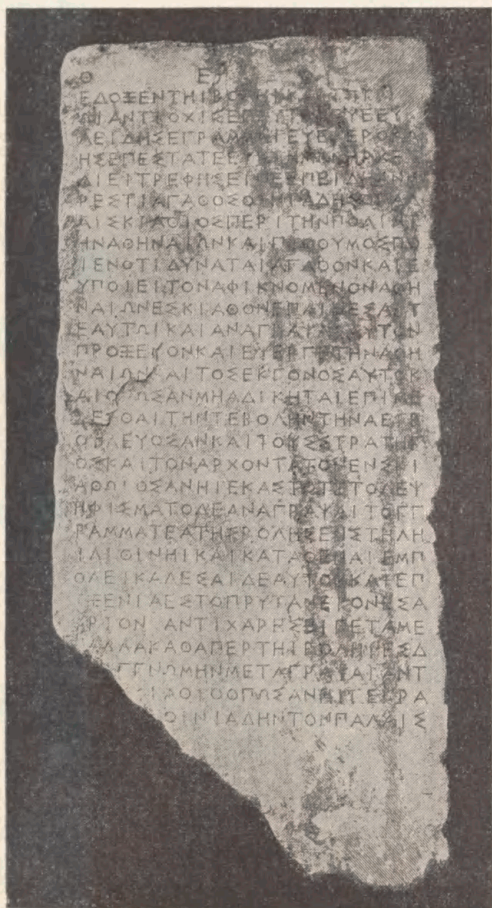 Θ Ε
ΕΔΟΞΕΝΤΗΙΒΟΛΗΙΚΑΙΤΩΙΔ
ΜΩΙΑΝΤΙΟΧΙΣΕΠΡΥΤΑΝΕΥΕΕΥ
ΚΛΕΙΔΗΣΕΓΡΑΜΜΑΤΕΥΕΙΕΡΟΚΛ
ΗΣΕΠΕΣΤΑΤΕΕΥΚΤΗΜΩΝΗΡΧΕ
ΔΙΕΙΤΡΕΦΗΣΕΙΠΕΕΠΕΙΔΗΑΝΗ
ΡΕΣΤΙΑΓΑΘΟΣΟΙΝΙΑΔΗΣΟΠΑΛ
ΑΙΣΚΙΑΘΙΟΣΠΕΡΙΤΗΝΠΟΛΙΝΤ
ΗΝΑΘΗΝΑΙΩΝΚΑΙΠΡΟΘΥΜΟΣΠΟ
ΙΕΝΟΤΙΔΥΝΑΤΑΙΑΓΑΘΟΝΚΑΙΕ
ΥΠΟΙΕΙΤΟΝΑΦΙΚΝΟΜΕΝΟΝΑΘΗ
ΝΑΙΩΝΕΣΚΙΑΘΟΝΕΠΑΙΝΕΣΑΙΤ
ΕΑΥΤΩΙΚΑΙΑΝΑΓΡΑΨΑΙΑΥΤΟΝ
ΠΡΟΞΕΝΟΝΚΑΙΕΥΕΡΓΕΤΗΝΑΘΗ
ΝΑΙΩΝΚΑΙΤΟΣΕΚΓΟΝΟΣΑΥΤΟΚ
ΑΙΟΠΩΣΑΝΜΗΑΔΙΚΗΤΑΙΕΠΙΜΕ
ΛΕΣΘΑΙΤΗΝΤΕΒΟΛΗΝΤΗΝΑΕΙΒ
ΟΛΕΥΟΣΑΝΚΑΙΤΟΥΣΣΤΡΑΤΗΓ
ΟΣΚΑΙΤΟΝΑΡΧΟΝΤΑΤΟΝΕΝΣΚΙ
ΑΘΩΙΟΣΑΝΗΙΕΚΑΣΤΟΤΕΤΟΔΕΨ
ΗΦΙΣΜΑΤΟΔΕΑΝΑΓΡΑΨΑΙΤΟΓΓ
ΡΑΜΜΑΤΕΑΤΗΣΒΟΛΗΣΕΝΣΤΗΛΗ
ΙΛΙΘΙΝΗΙΚΑΙΚΑΤΑΘΕΝΑΙΕΜΠ
ΟΛΕΙΚΑΛΕΣΑΙΔΕΑΥΤΟΝΚΑΙΕΠ
ΙΞΕΝΙΑΕΣΤΟΠΡΥΤΑΝΕΙΟΝΕΣΑ
ΥΡΙΟΝΑΝΤΙΧΑΡΗΣΕΙΠΕΤΑΜΕ
ΝΑΛΛΑΚΑΘΑΠΕΡΤΗΙΒΟΛΗΙΕΣΔ
ΓΓΝΩΜΗΝΜΕΤΑΓΡΑΨΑΙΑΝΤ
ΙΑΘΙΟΟΠΩΣΑΝΗΙΓΕΓΡΑ
ΟΙΝΙΑΔΗΝΤΟΝΠΑΛΑΙΣ